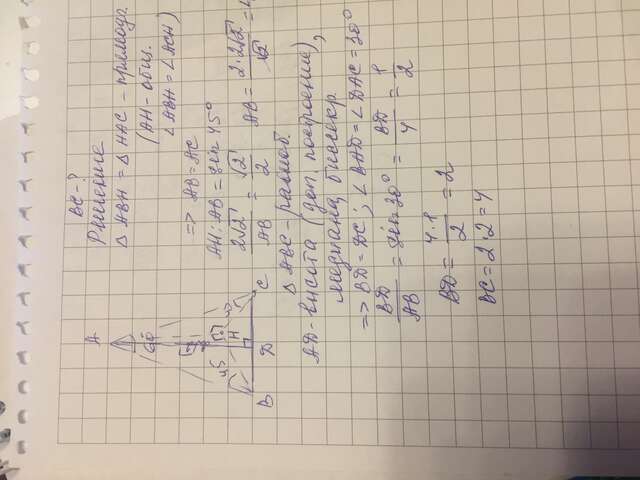 BC - ?
Решение
△ABH = △HAC - прямоуг.
(AH - общ.
∠ABH = ∠ACH)
=> AB = AC
AH : AB = sin 45°
2√2 / AB = √2 / 2
AB = 2·2√2 / √2 =
△ABC - равноб.
AD - высота (доп. построение),
медиана, биссектр
=> BD = DC; ∠BAD = ∠DAC = 30°
BD / AB = sin 30° = BD / 4 = 1 / 2
BD = 4·1 / 2 = 2
BC = 2·2 = 4
A
60
45
H
B
D
C